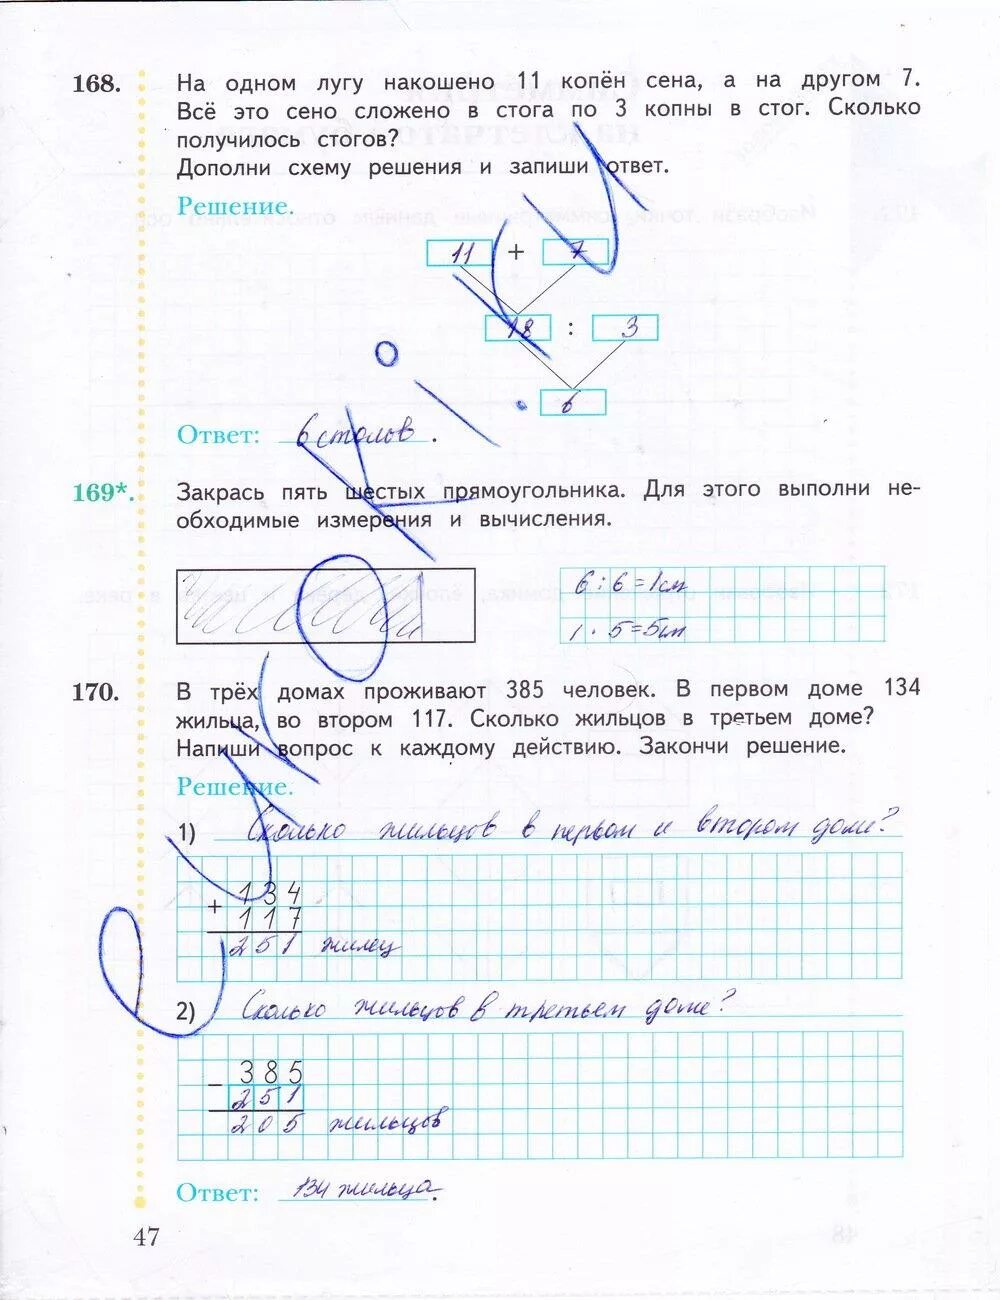 168. На одном лугу накошено 11 копён сена, а на другом 7.
Всё это сено сложено в стога по 3 копны в стог. Сколько
получилось стогов?
Дополни схему решения и запиши ответ.
Решение.
11 + 7
18 : 3
6
Ответ: 6 столов.
169*. Закрась пять шестых прямоугольника. Для этого выполни не-
обходимые измерения и вычисления.
6 : 6 = 1см
1 · 5 = 5см
170. В трёх домах проживают 385 человек. В первом доме 134
жильца, во втором 117. Сколько жильцов в третьем доме?
Напиши вопрос к каждому действию. Закончи решение.
Решение.
1) Сколько жильцов в первом и втором доме?
134
+
117
251 жилец
2) Сколько жильцов в третьем доме?
385
-
251
205 жильцов
Ответ: 134 жильца.
47